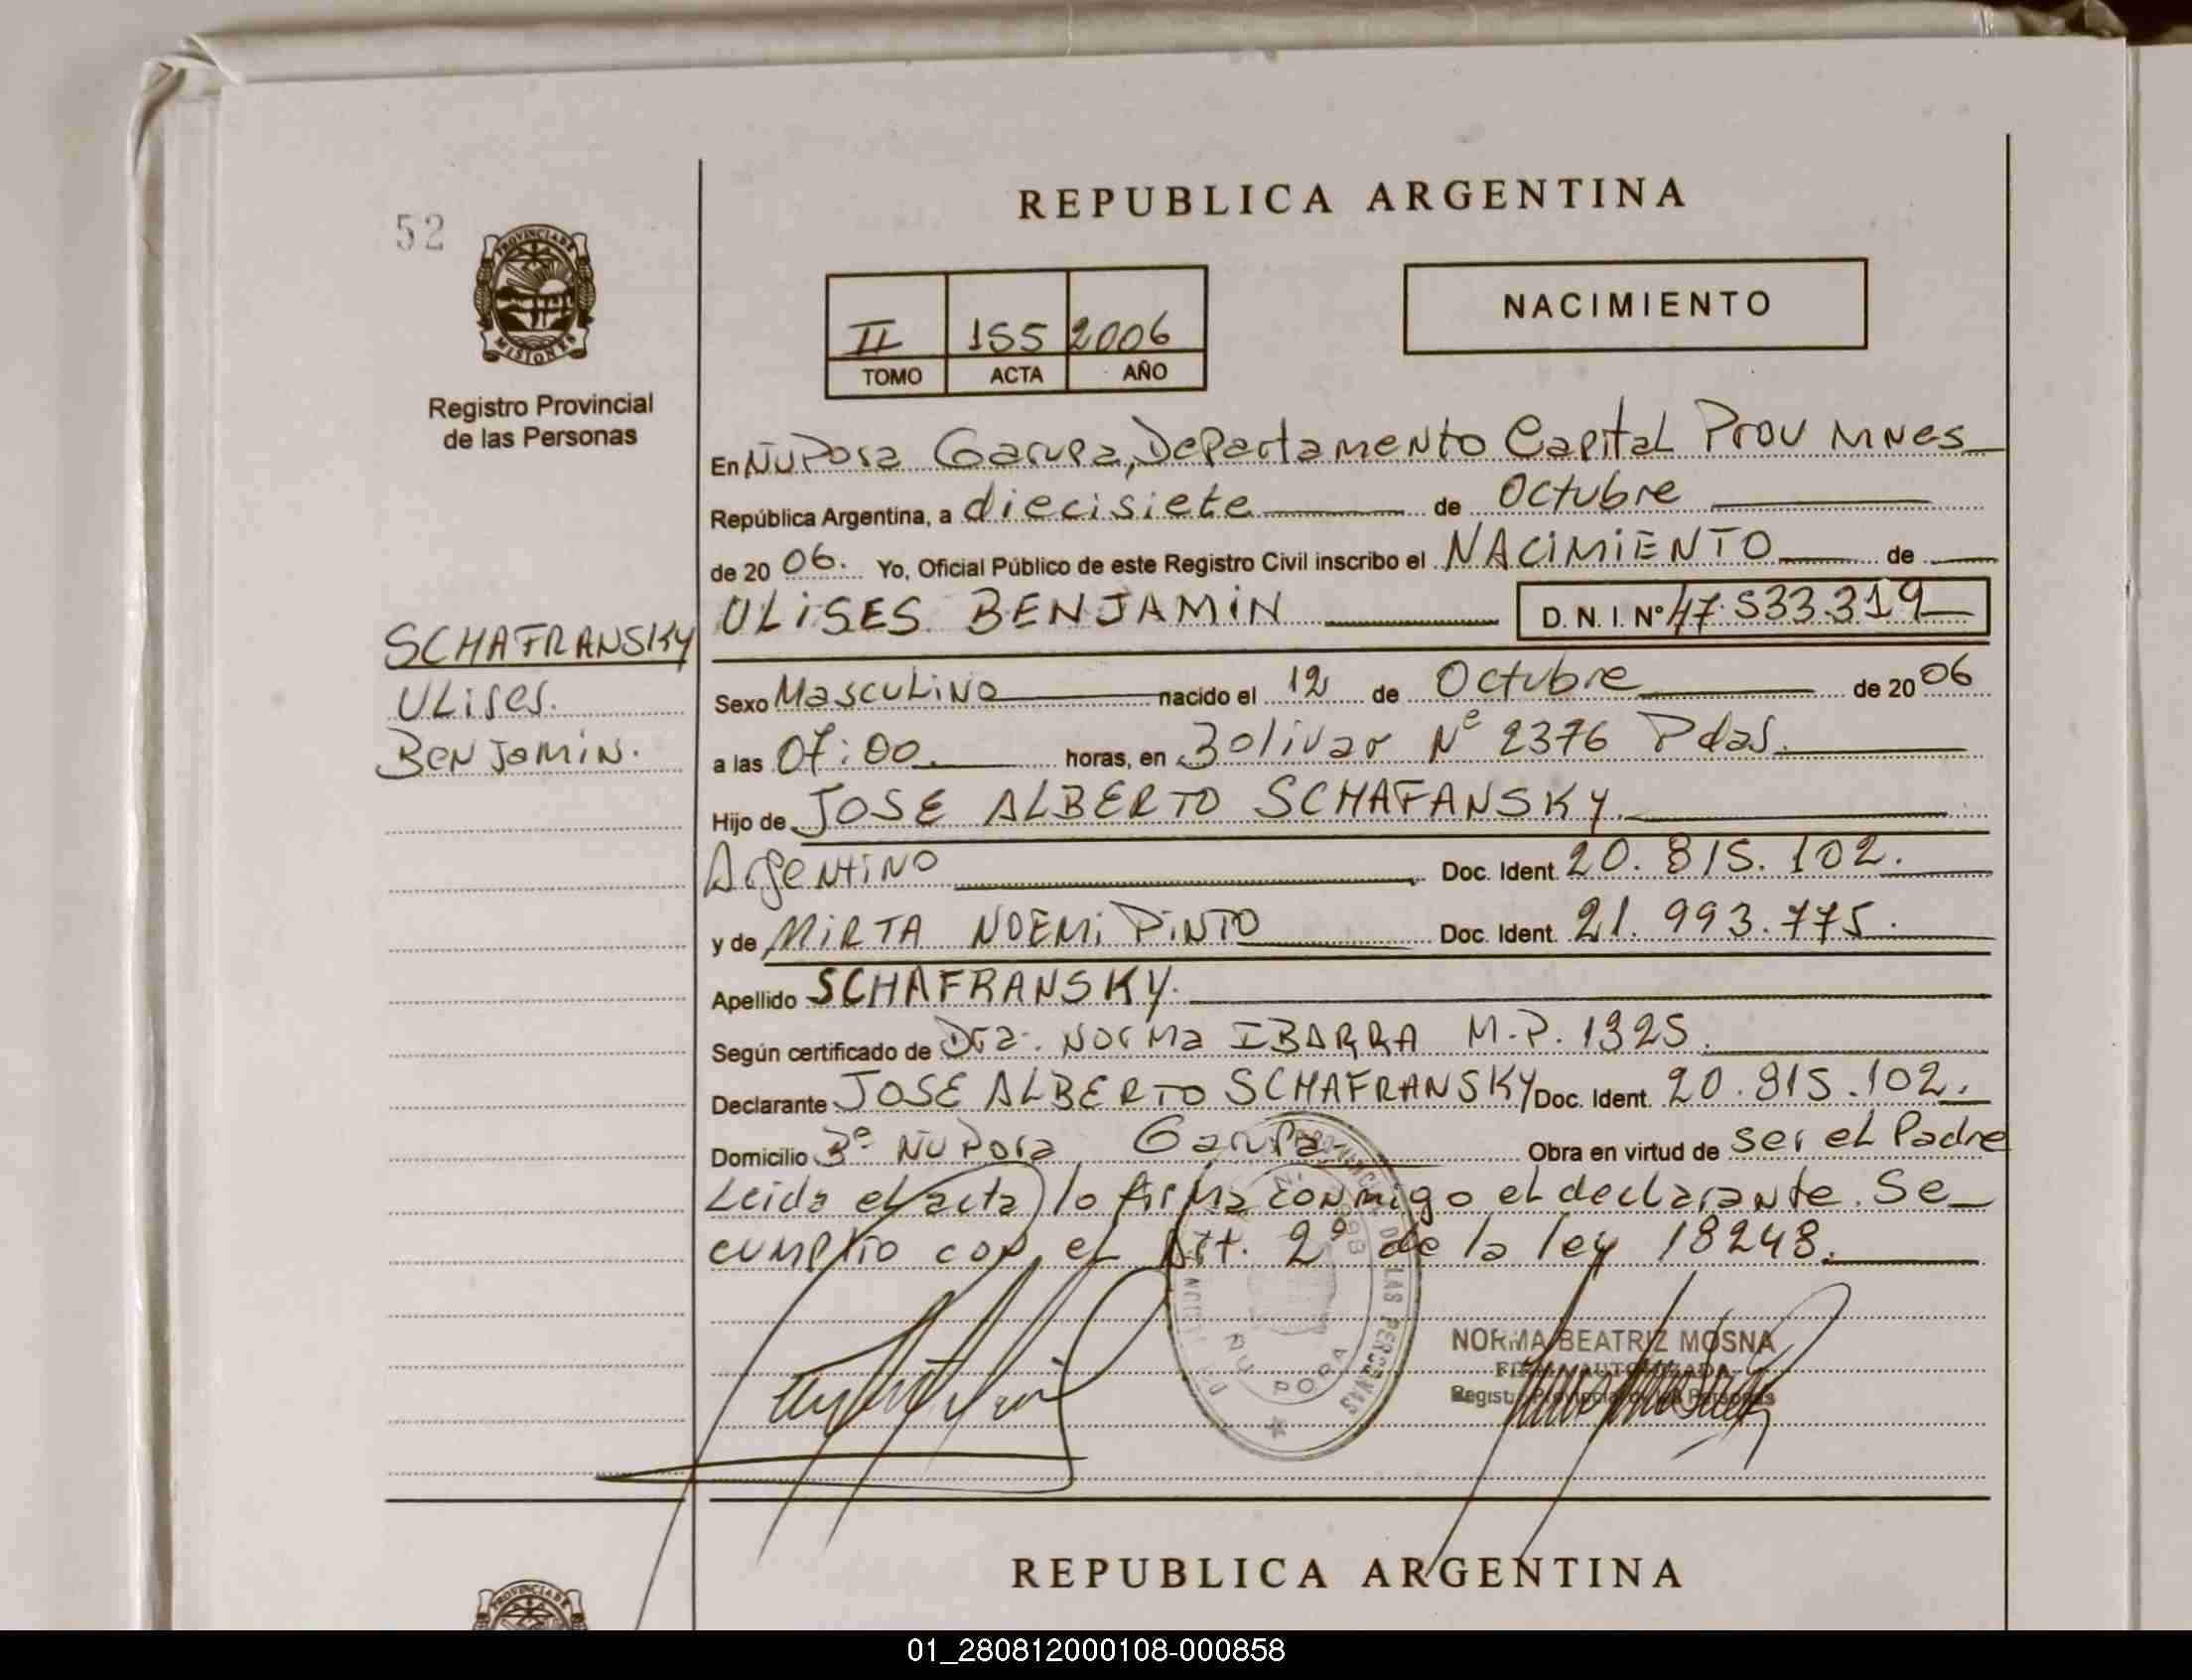 52
PROVINCIA DE
MISIONES
Registro Provincial
de las Personas
SCHAFRANSKY
ULises.
BeN JaMiN.
REPUBLICA ARGENTINA
II 155 2006
TOMO ACTA AÑO
NACIMIENTO
En ÑU Pora Garupa, Departamento Capital Prov MNes
República Argentina, a diecisiete de Octubre
de 2006. Yo, Oficial Público de este Registro Civil inscribo el NACIMIENTO de
ULISES BENJAMIN D. N. I. Nº 47.533.319
Sexo Masculino nacido el 12 de Octubre de 2006
a las 07:00. horas, en Bolivar Nº 2376 Pdas.
Hijo de JOSE ALBERTO SCHAFANSKY.
Argentino Doc. Ident. 20.815.102.
y de MIRTA NOEMI PINTO Doc. Ident. 21.993.775.
Apellido SCHAFRANSKY.
Según certificado de Dra. Norma IBARRA M.P. 1325.
Declarante JOSE ALBERTO SCHAFRANSKY Doc. Ident. 20.815.102.
Domicilio Bº ÑU Pora Garupa Obra en virtud de ser el Padre
Leida el acta, lo firma conmigo el declarante. Se
cumplio con el Art. 2º de la ley 18248.
DE LAS PERSONAS
ÑU PORA
NORMA BEATRIZ MOSNA
FIRMA AUTORIZADA
Registro Provincial de las Personas
REPUBLICA ARGENTINA
PROVINCIA DE
01_280812000108-000858